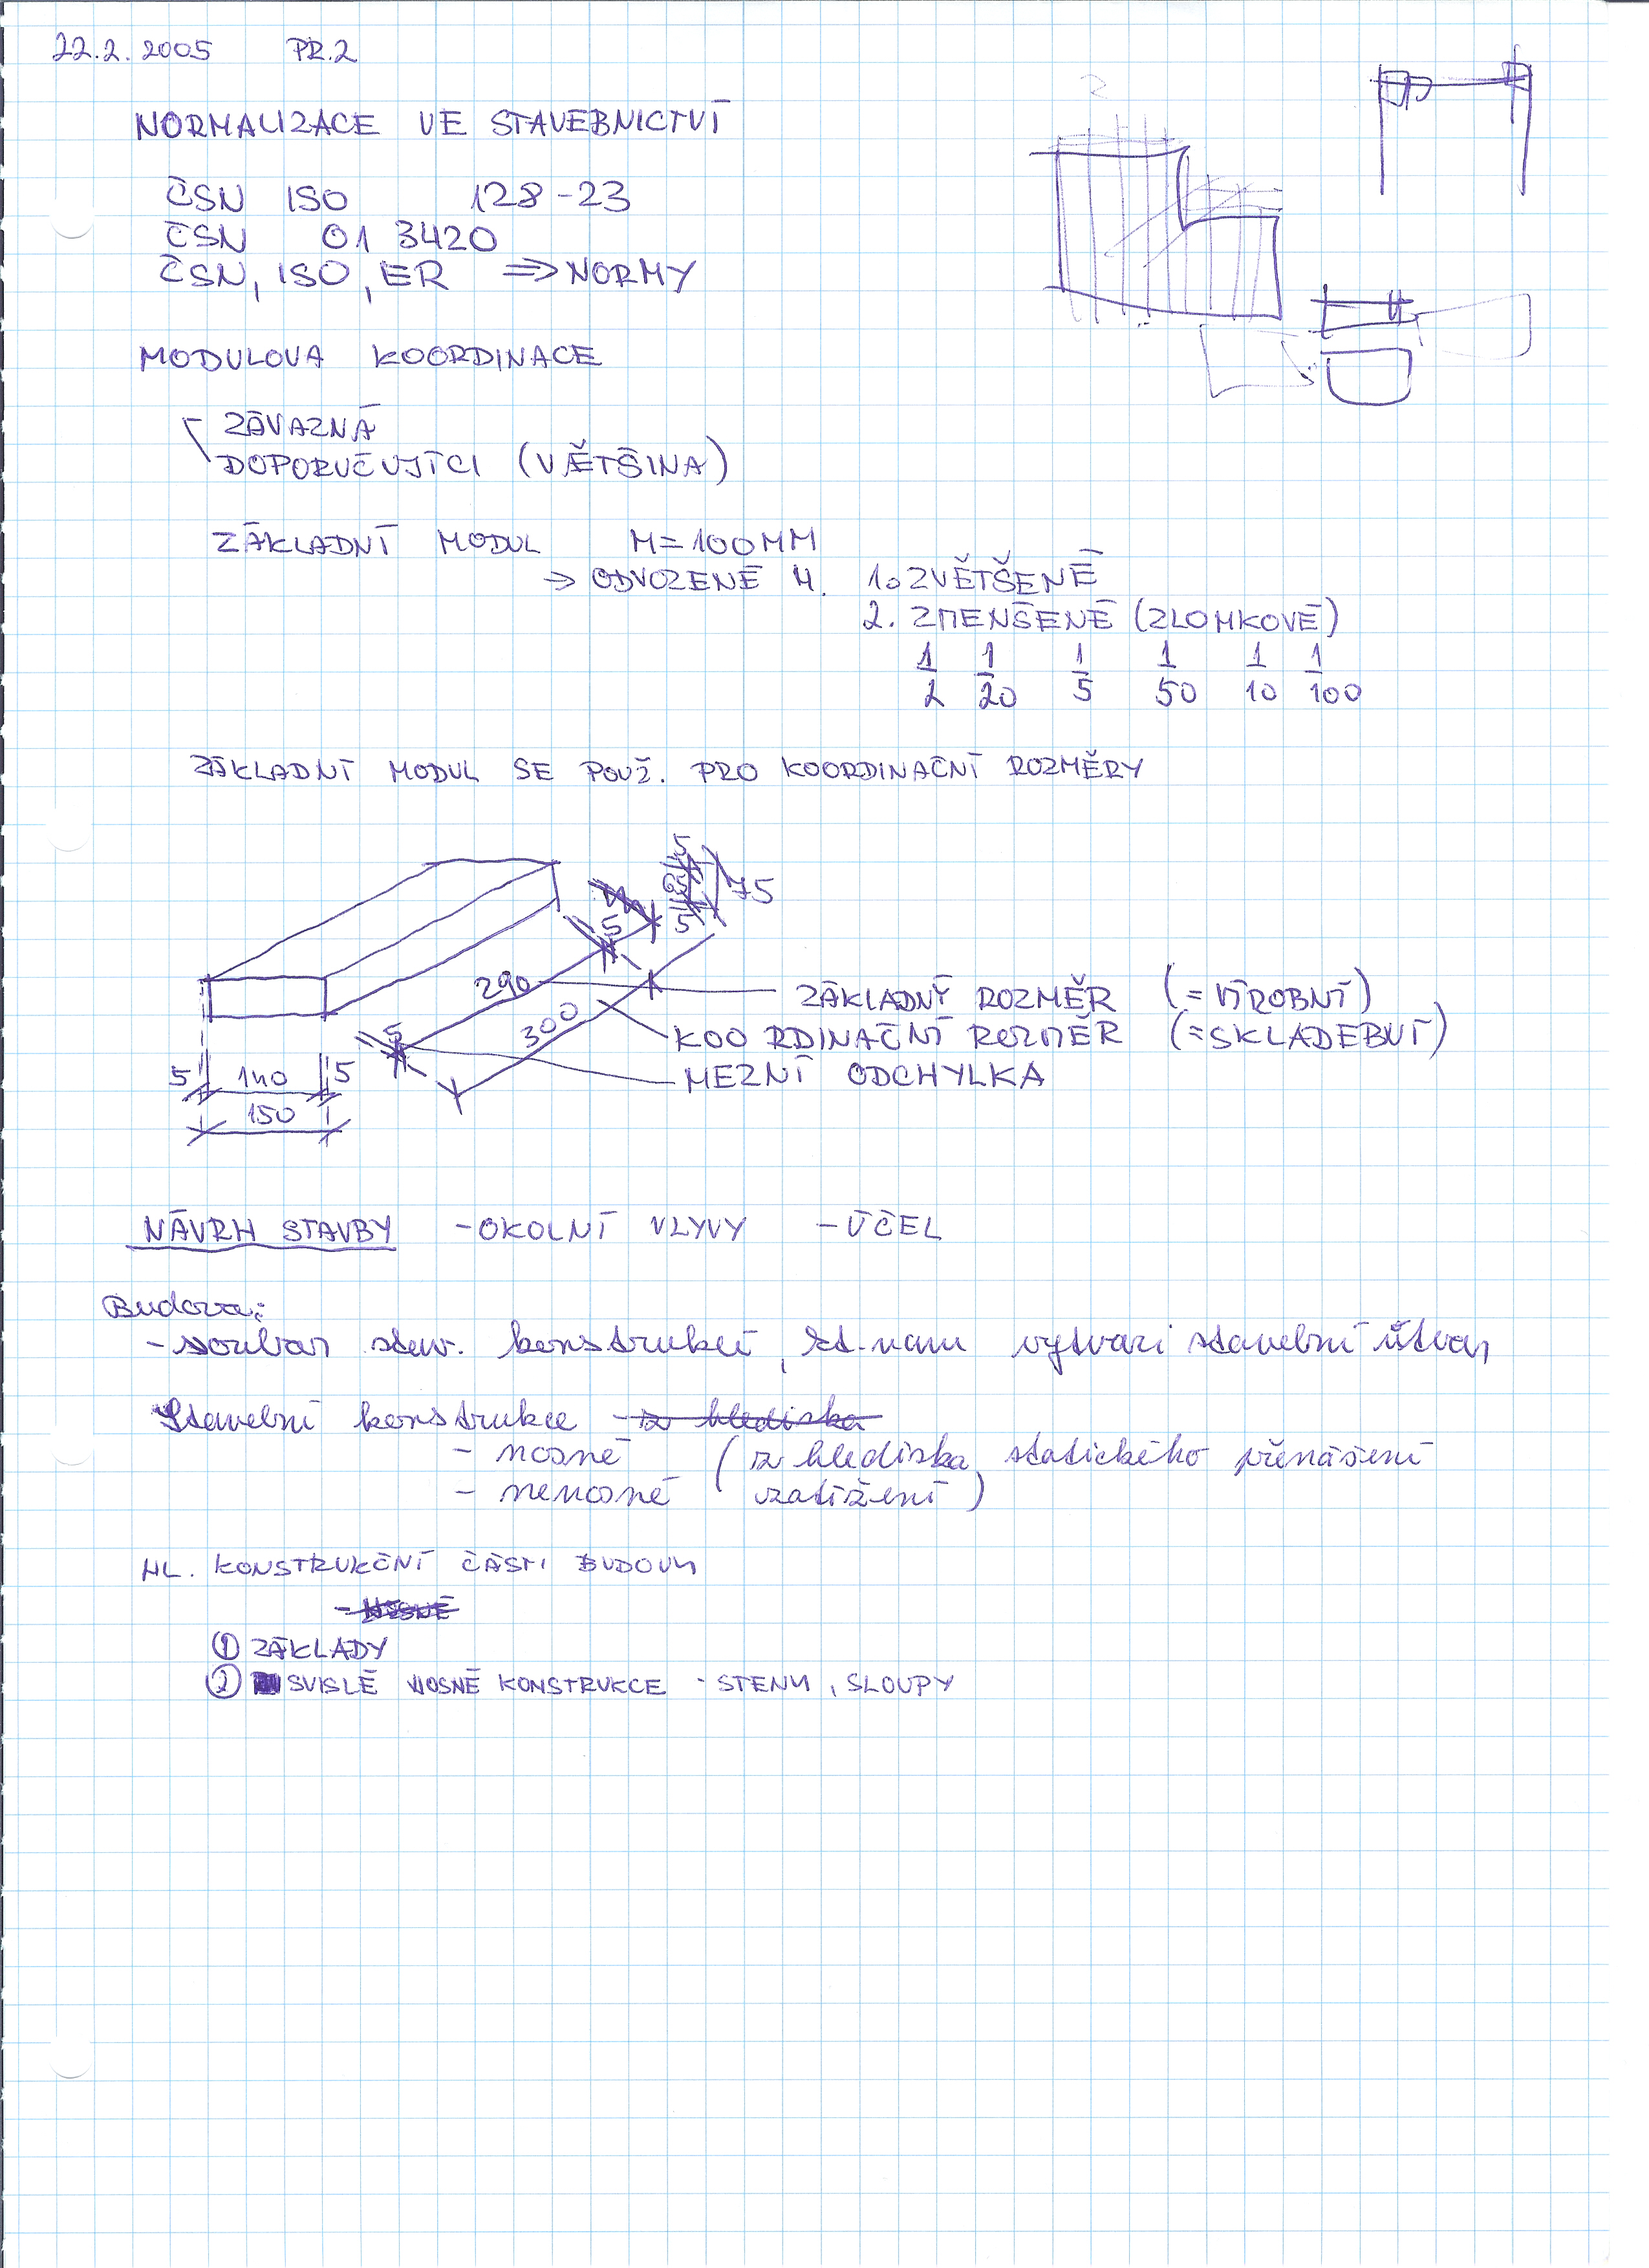 22.2.2005 PŘ.2
NORMALIZACE VE STAVEBNICTVÍ
ČSN ISO 128-23
ČSN 01 3420
ČSN, ISO, ER ⇒ NORMY
MODULOVA KOORDINACE
ZÁVAZNÁ
DOPORUČUJÍCI (VĚTŠINA)
ZÁKLADNÍ MODUL M=100MM
⇒ ODVOZENÉ M. 1. ZVĚTŠENÉ
2. ZMENŠENÉ (ZLOMKOVÉ)
1/2 1/20 1/5 1/50 1/10 1/100
ZÁKLADNÍ MODUL SE POUŽ. PRO KOORDINAČNÍ ROZMĚRY
5
75
5
5
290 ZÁKLADNÝ ROZMĚR (=VÝROBNÍ)
300 KOORDINAČNÍ ROZMĚR (=SKLADEBNÍ)
5 MEZNÍ ODCHYLKA
5 140 5
150
NÁVRH STAVBY -OKOLNÍ VLYVY -ÚČEL
Budova:
- soubor stav. konstrukcí, kt. nam vytvari stavební útvar
Stavební konstrukce z hlediska
- nosné (z hlediska statického přenášení
- nenosné zatížení)
HL. KONSTRUKČNÍ ČÁSTI BUDOVY
- NOSNÉ
① ZÁKLADY
② SVISLÉ NOSNÉ KONSTRUKCE - STENY, SLOUPY